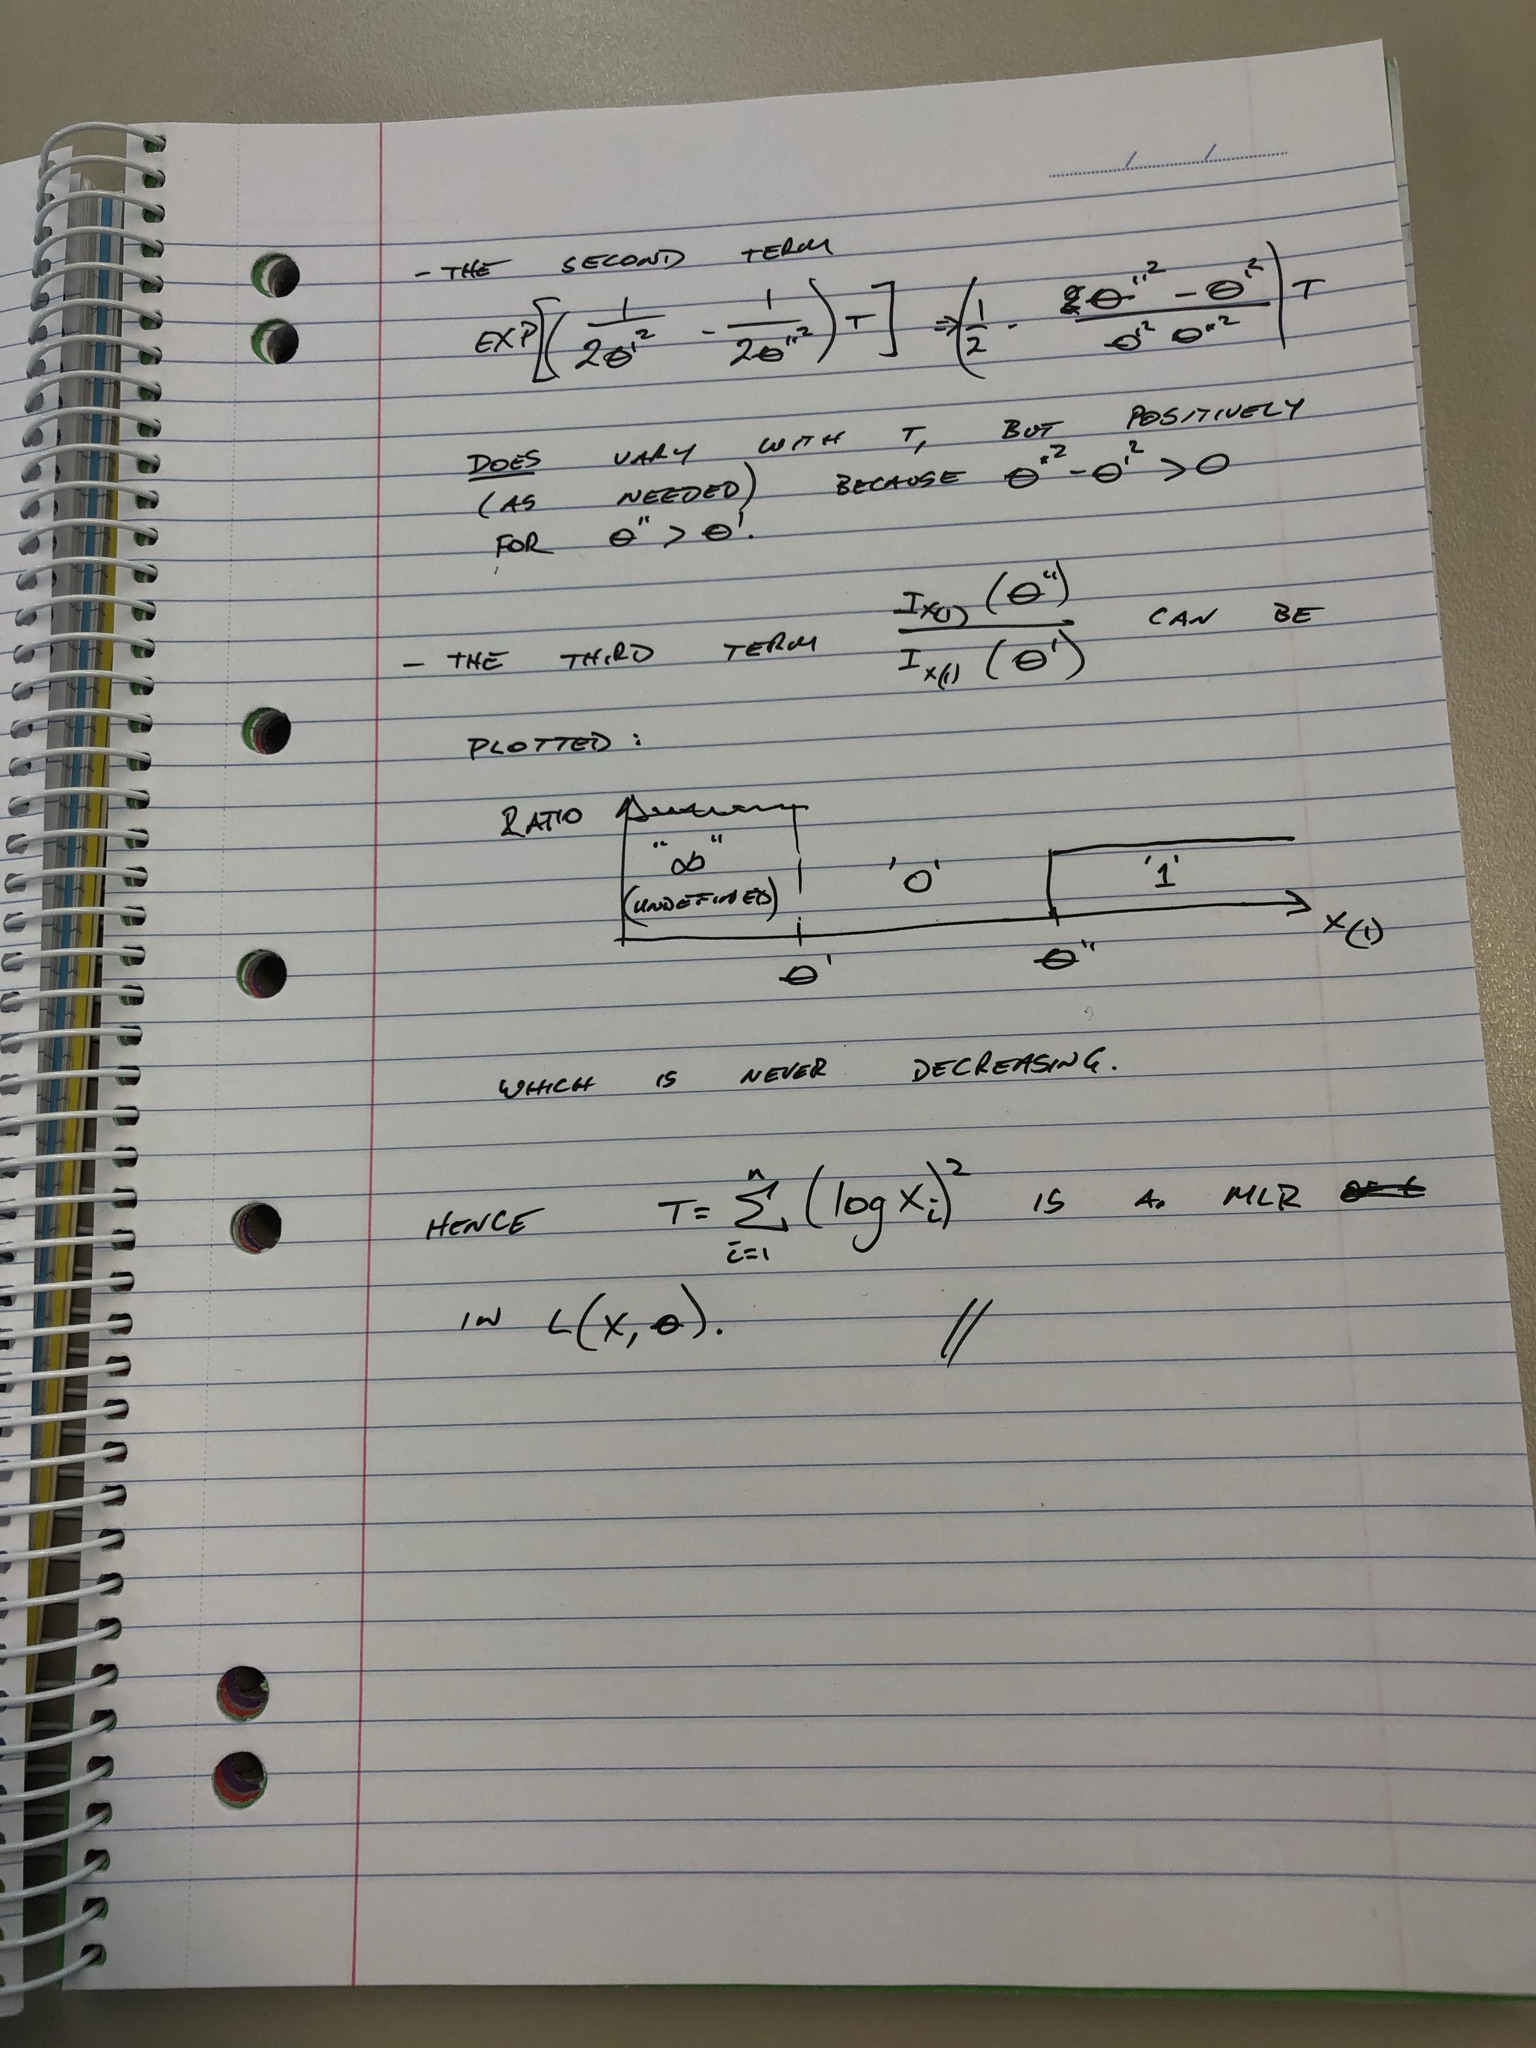 - THE SECOND TERM
EXP[(1/(2θ'²) - 1/(2θ''²))T] ⇒ (1/2 - (θ''² - θ'²)/(θ'² θ''²))T
DOES VARY WITH T, BUT POSITIVELY
(AS NEEDED) BECAUSE θ''² - θ'² > 0
FOR θ'' > θ'.
- THE THIRD TERM I_{X(1)}(θ'')/I_{X(1)}(θ') CAN BE
PLOTTED:
RATIO
"∞"
(UNDEFINED)
'0'
'1'
θ'
θ''
X(1)
WHICH IS NEVER DECREASING.
HENCE T = Σ_{i=1}^{n} (log X_i)² IS A MLR
IN L(X, θ). //